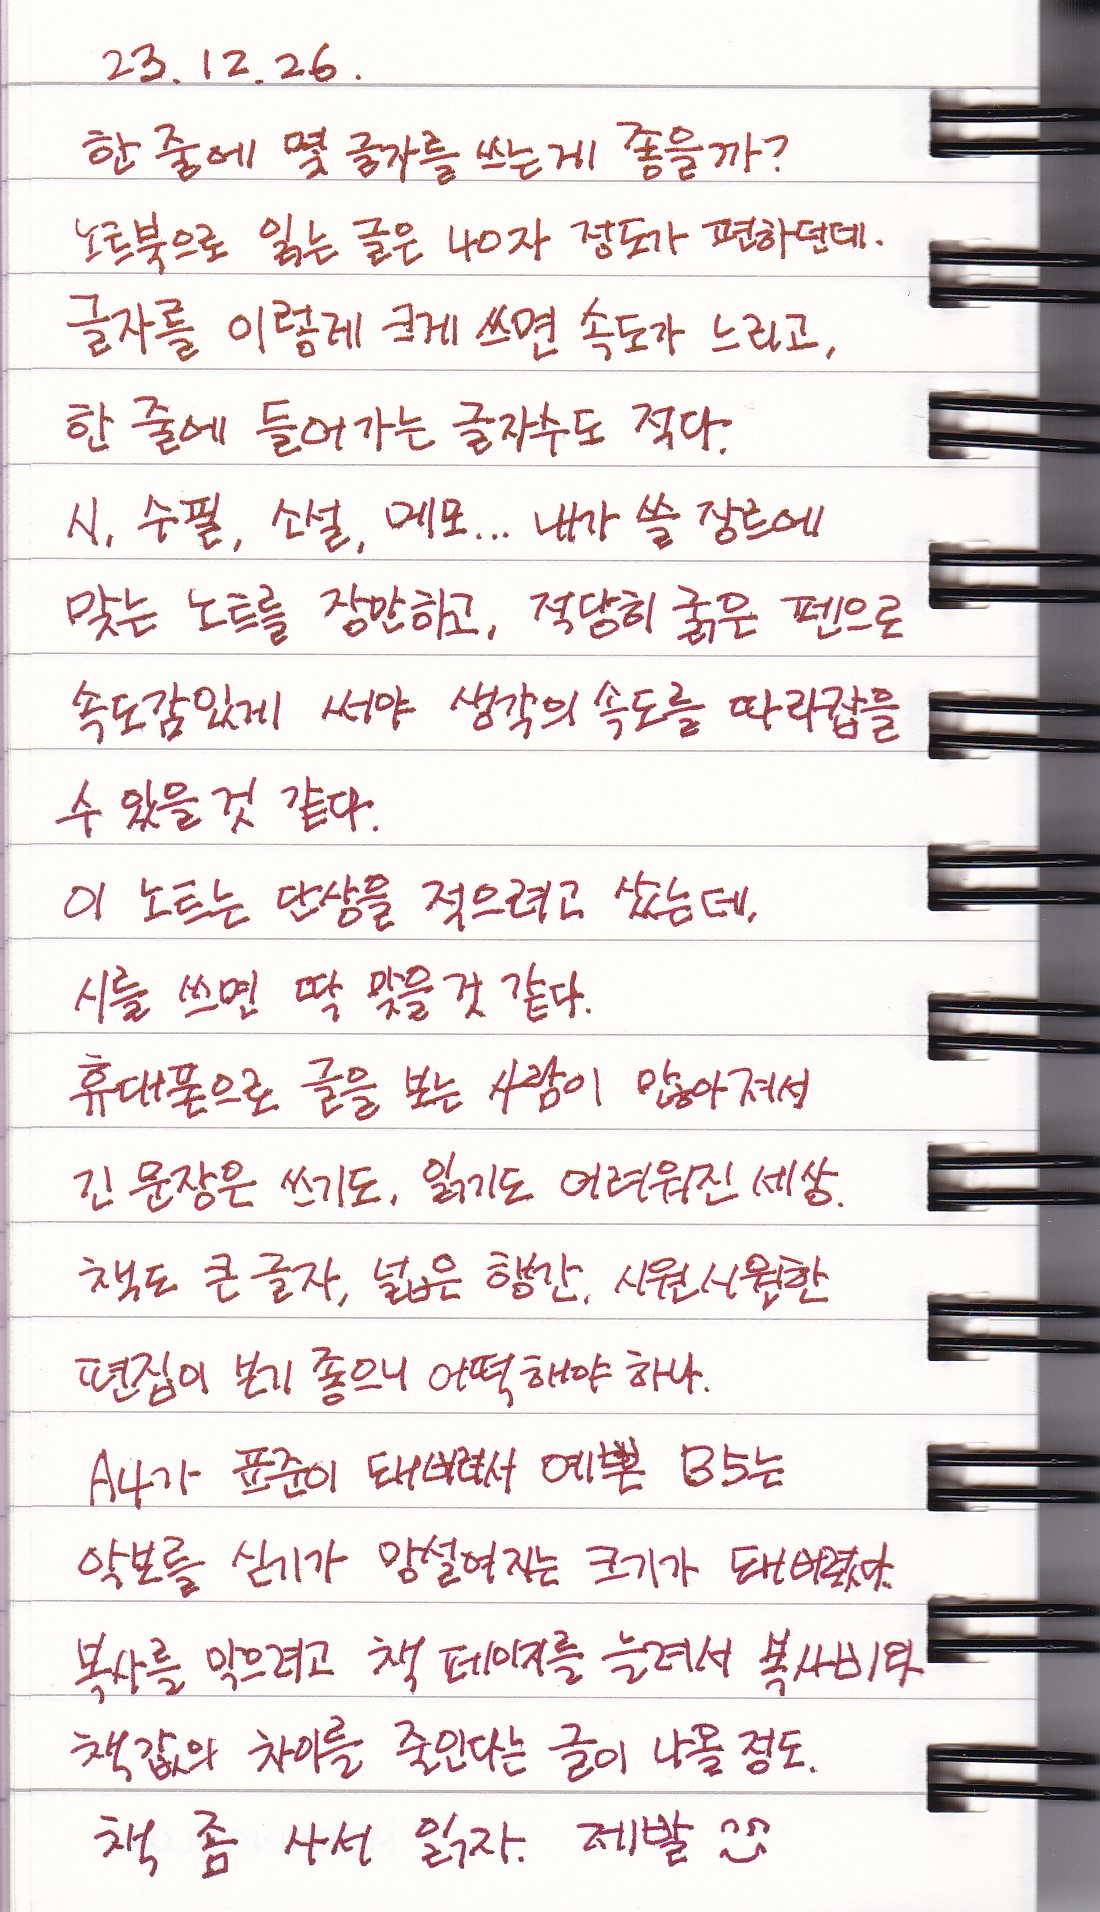 23.12.26.
한 줄에 몇 글자를 쓰는게 좋을까?
노트북으로 읽는 글은 40자 정도가 편하던데.
글자를 이렇게 크게 쓰면 속도가 느리고,
한 줄에 들어가는 글자수도 적다.
시, 수필, 소설, 메모... 내가 쓸 장르에
맞는 노트를 장만하고, 적당히 굵은 펜으로
속도감있게 써야 생각의 속도를 따라잡을
수 있을것 같다.
이 노트는 단상을 적으려고 샀는데,
시를 쓰면 딱 맞을것 같다.
휴대폰으로 글을 보는 사람이 많아져서
긴 문장은 쓰기도, 읽기도 어려워진 세상.
책도 큰 글자, 넓은 행간, 시원시원한
편집이 보기 좋으니 어떡해야 하나.
A4가 표준이 돼버려서 예쁜 B5는
악보를 싣기가 망설여지는 크기가 돼버렸다.
복사를 막으려고 책 페이지를 늘려서 복사비와
책값의 차이를 줄인다는 글이 나올 정도.
책 좀 사서 읽자. 제발